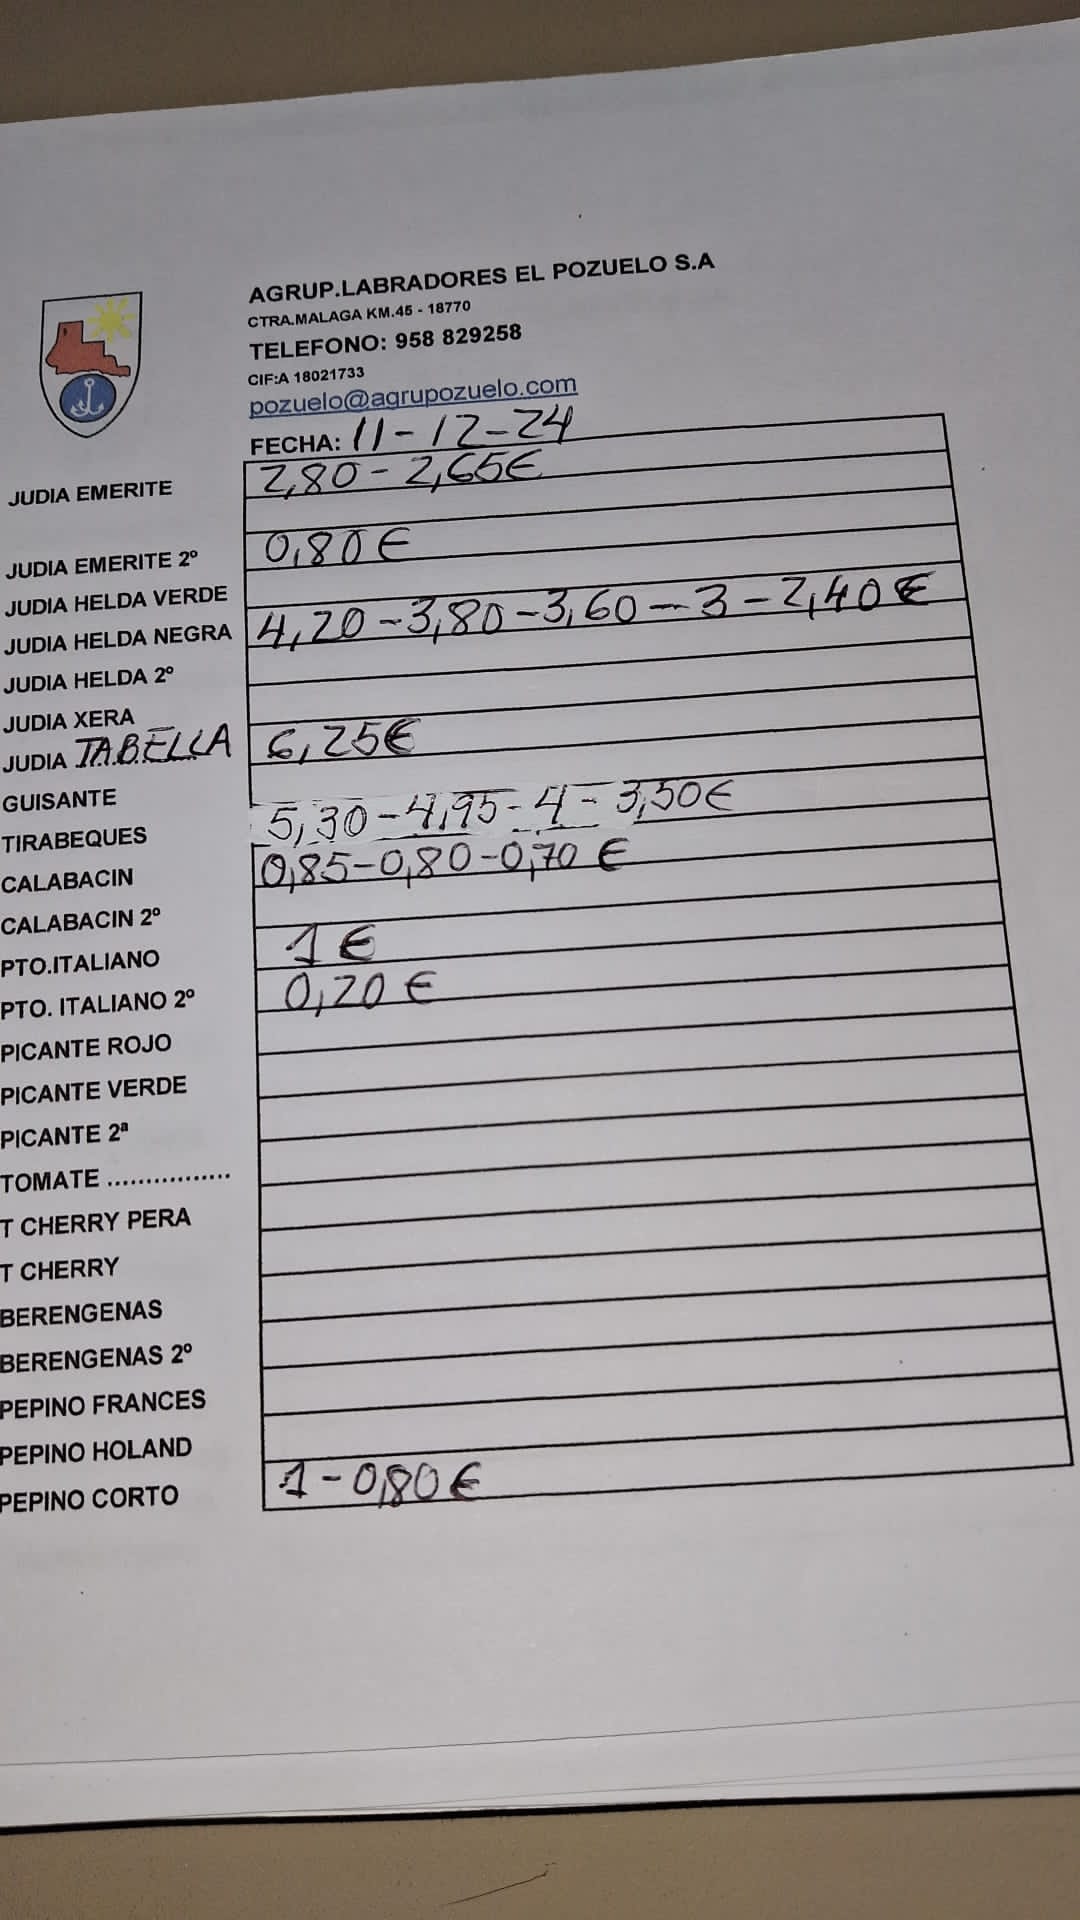 AGRUP.LABRADORES EL POZUELO S.A
CTRA.MALAGA KM.45 - 18770
TELEFONO: 958 829258
CIF:A 18021733
pozuelo@agrupozuelo.com
FECHA: 11-12-24
JUDIA EMERITE 2,80 - 2,65€
JUDIA EMERITE 2º 0,80€
JUDIA HELDA VERDE
JUDIA HELDA NEGRA 4,20-3,80-3,60-3-2,40€
JUDIA HELDA 2º
JUDIA XERA
JUDIA TABELLA 6,25€
GUISANTE
TIRABEQUES 5,30-4,95-4-3,50€
CALABACIN 0,85-0,80-0,70 €
CALABACIN 2º
PTO.ITALIANO 1 €
PTO. ITALIANO 2º 0,20 €
PICANTE ROJO
PICANTE VERDE
PICANTE 2ª
TOMATE ................
T CHERRY PERA
T CHERRY
BERENGENAS
BERENGENAS 2º
PEPINO FRANCES
PEPINO HOLAND
PEPINO CORTO 1-0,80€